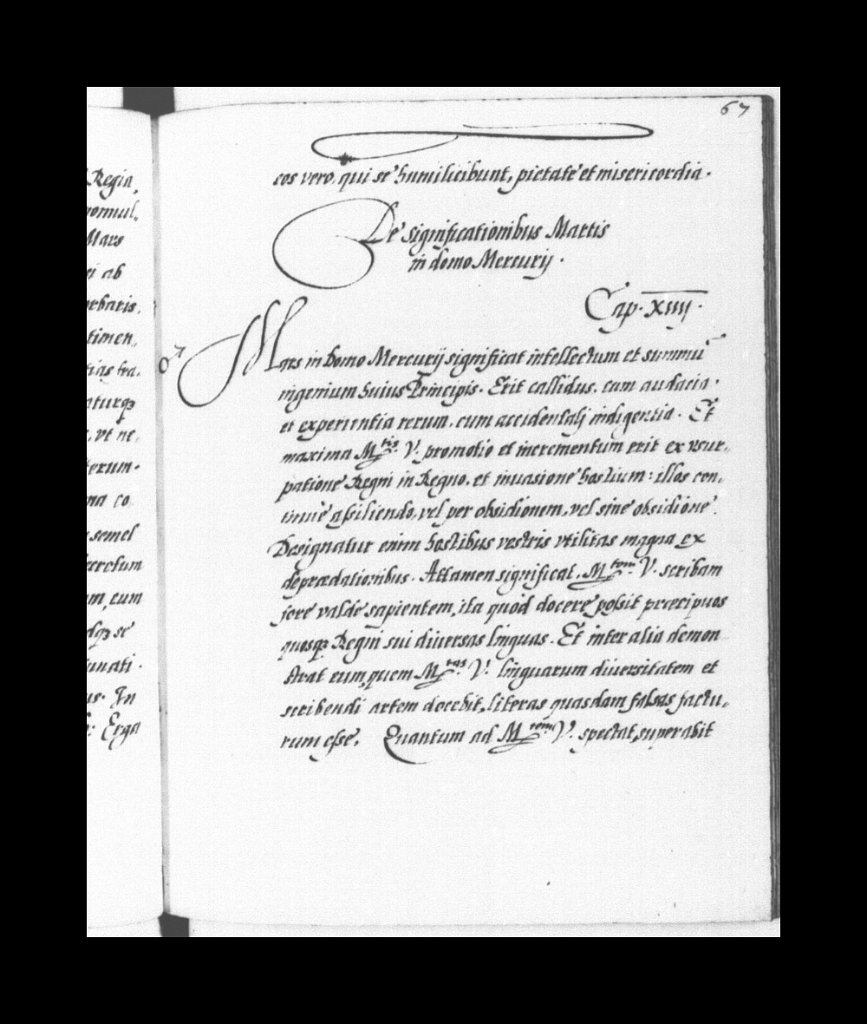 Regia,
nonnul,,
Mars
ei ab
rbatis.
timen,,
tias fra,,
aturq₃
, vt ne,,
terum.
na co
semel
cretum
m, cum
dq₃ se
unati.
us. In
: Erga
67
eos vero, qui se humiliabunt, pietate et misericordia.
De significationibus Martis
in domo Mercurij.
Cap. XIIIJ.
♂
Mars in domo Mercurij significat intellectum et summū
ingenium huius Principis. Erit callidus, cum audacia,
et experientia rerum, cum accidentalj indigentia. Et
maxima M.tis V. promotio et incrementum erit ex vsur,,
patione Regni in Regno, et inuasione hostium: illos con,,
tinuè assiliendo, vel per obsidionem, vel sine obsidione.
Designatur enim hostibus vestris vtilitas magna ex
depraedationibus. Attamen significat, M.tem V. scribam
fore valde sapientem, ita quòd docere possit praecipuos
quosq₃ Regni sui diuersas linguas. Et inter alia demon
strat eum, quem M.tas V. linguarum diuersitatem et
scribendi artem docebit, literas quasdam falsas factu,,
rum esse. Quantum ad M.tem V. spectat, superabit